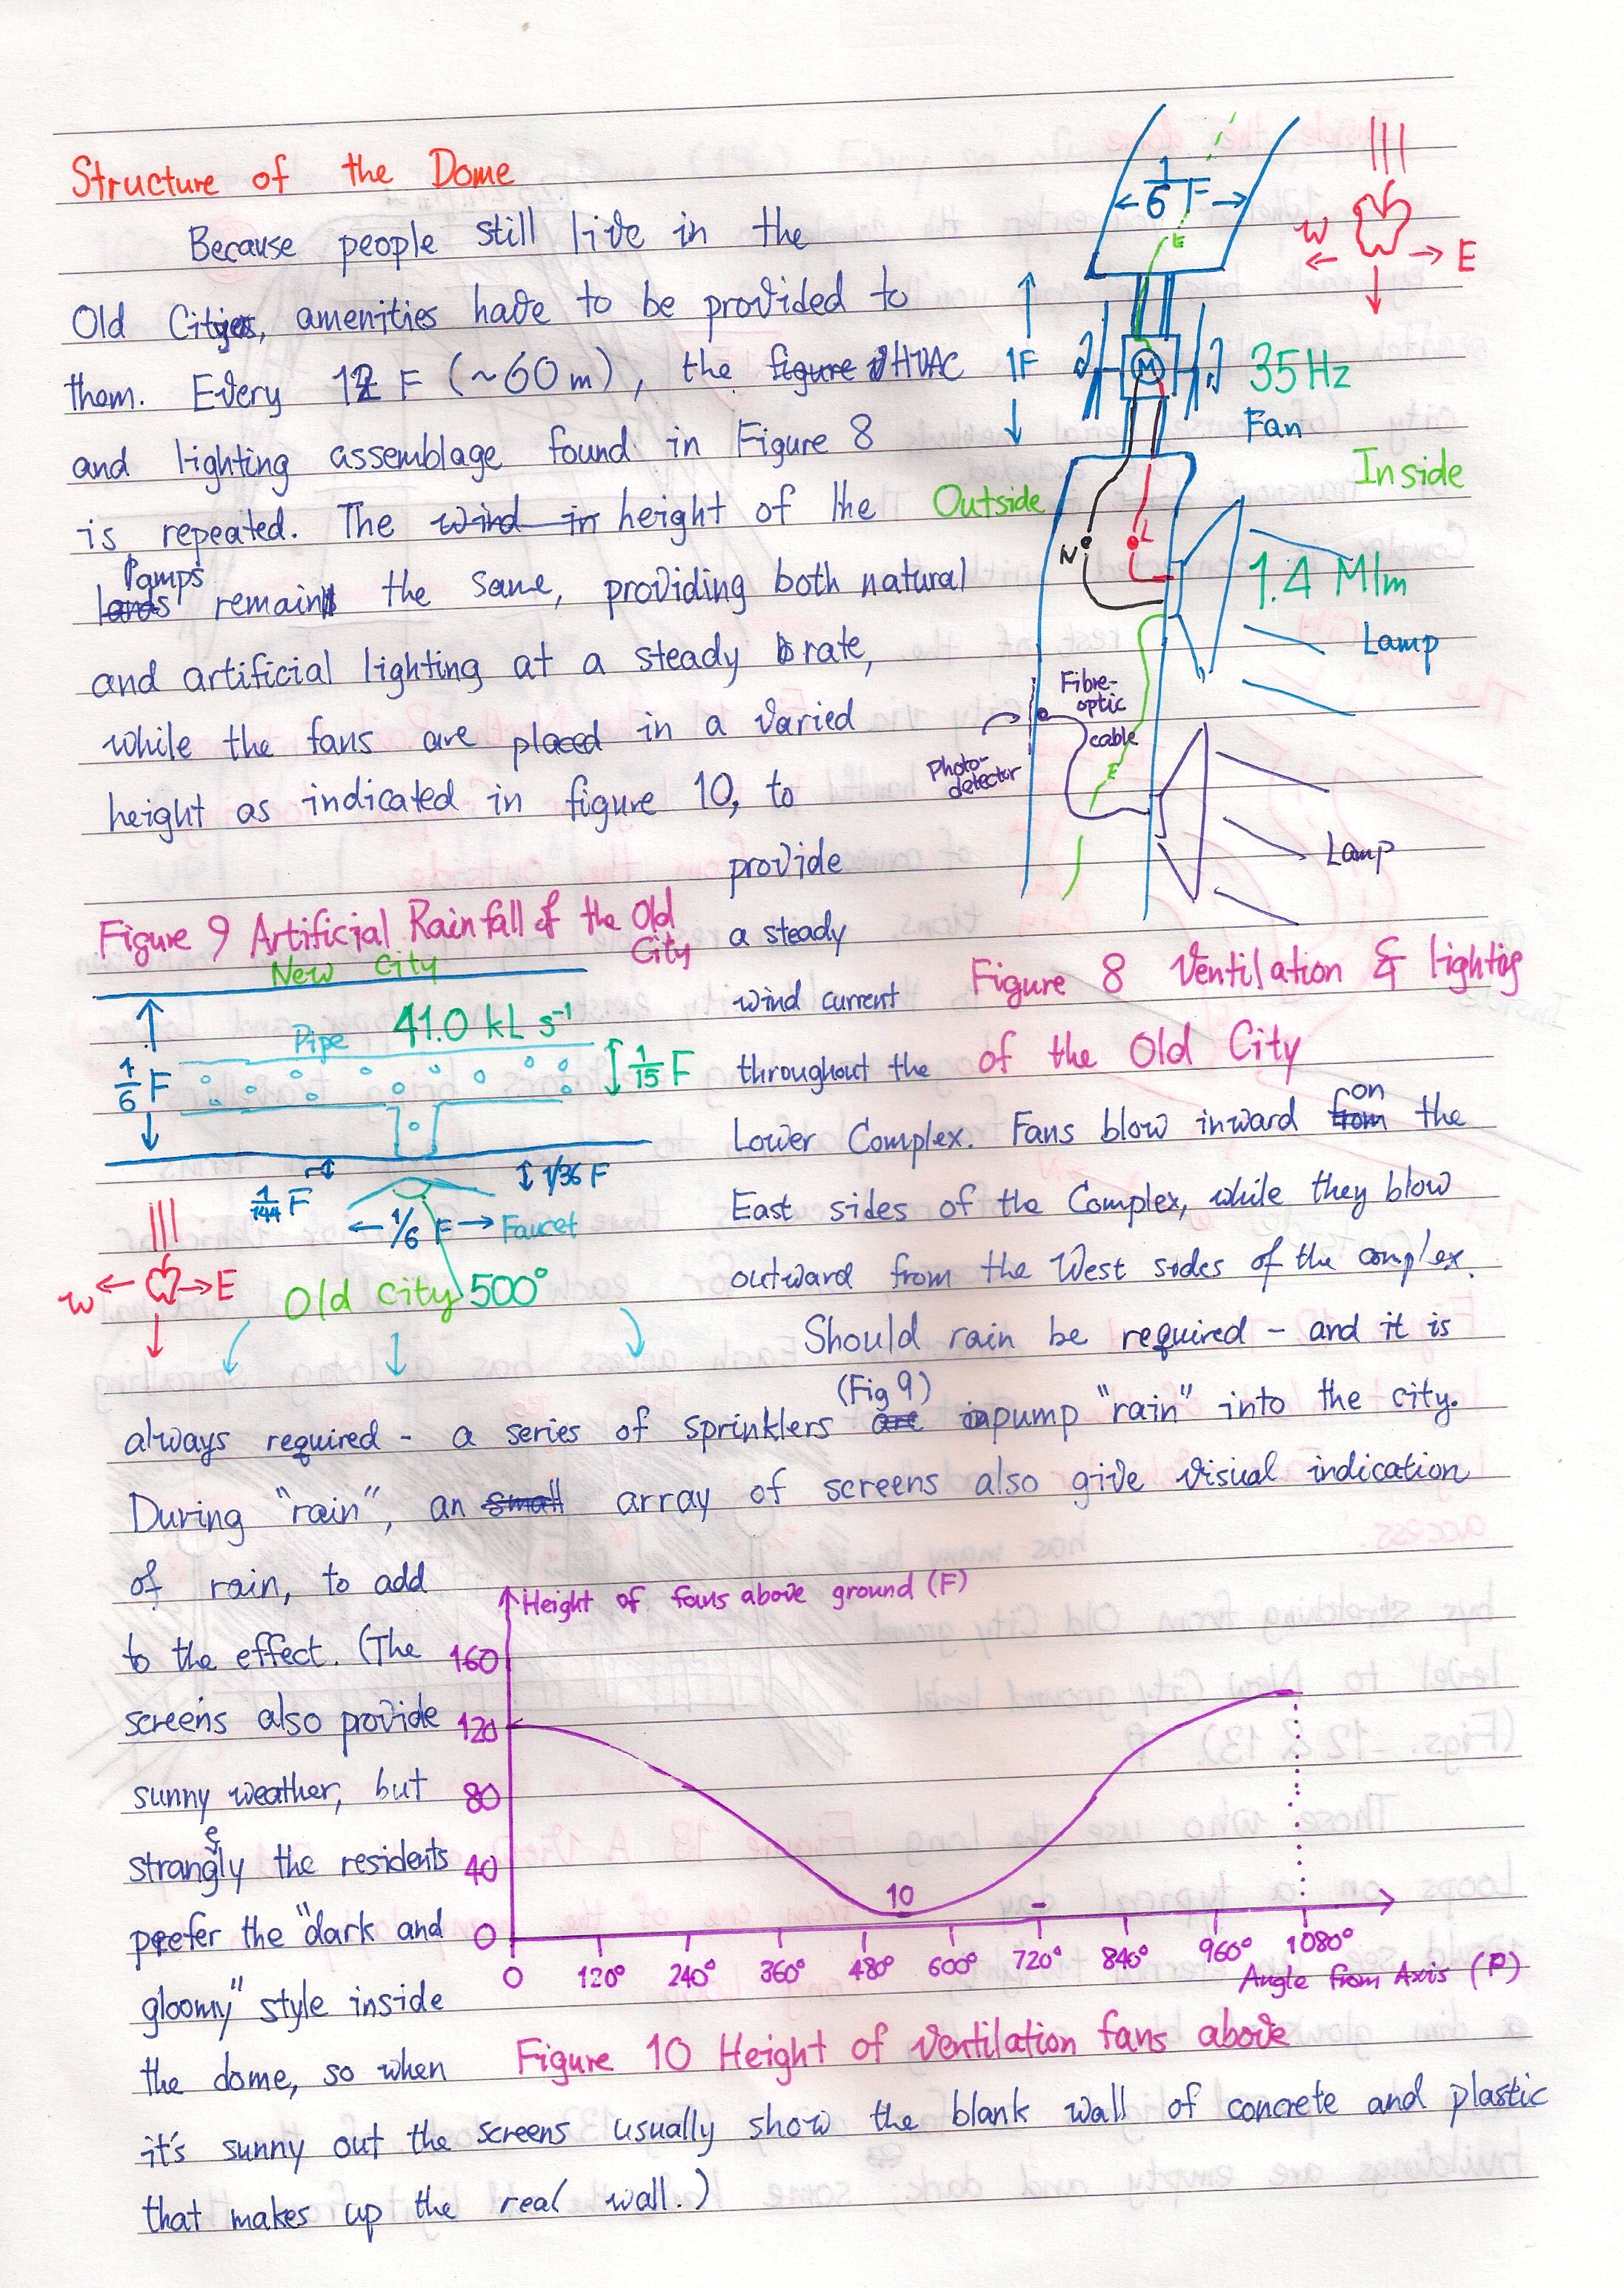 Structure of the Dome
Because people still live in the
Old Cities, amenities have to be provided to
them. Every 12 F (~60m), the HVAC
and lighting assemblage found in Figure 8
is repeated. The height of the
lamps remain the same, providing both natural
and artificial lighting at a steady rate,
while the fans are placed in a varied
height as indicated in figure 10, to
provide
a steady
wind current
throughout the
Lower Complex. Fans blow inward on the
East sides of the Complex, while they blow
outward from the West sides of the complex.
Should rain be required - and it is
always required - a series of sprinklers (Fig 9) pump "rain" into the city.
During "rain", an array of screens also give visual indication
of rain, to add
to the effect. (The
screens also provide
sunny weather, but
strangely the residents
prefer the "dark and
gloomy" style inside
the dome, so when
it's sunny out the screens usually show the blank wall of concrete and plastic
that makes up the real wall.)
1/6 F
E
W
E
1F
M
35 Hz
Fan
Outside
Inside
N
L
1.4 Mlm
Lamp
Fibre-
optic
cable
Photo-
detector
E
Lamp
Figure 8 Ventilation & lighting
of the Old City
Figure 9 Artificial Rainfall of the Old
City
New City
Pipe
41.0 kL s⁻¹
1/6 F
1/15 F
1/144 F
1/36 F
1/6 F
Faucet
W
E
Old City
500°
Height of fans above ground (F)
160
120
80
40
0
10
0
120°
240°
360°
480°
600°
720°
840°
960°
1080°
Angle from Axis (P)
Figure 10 Height of ventilation fans above